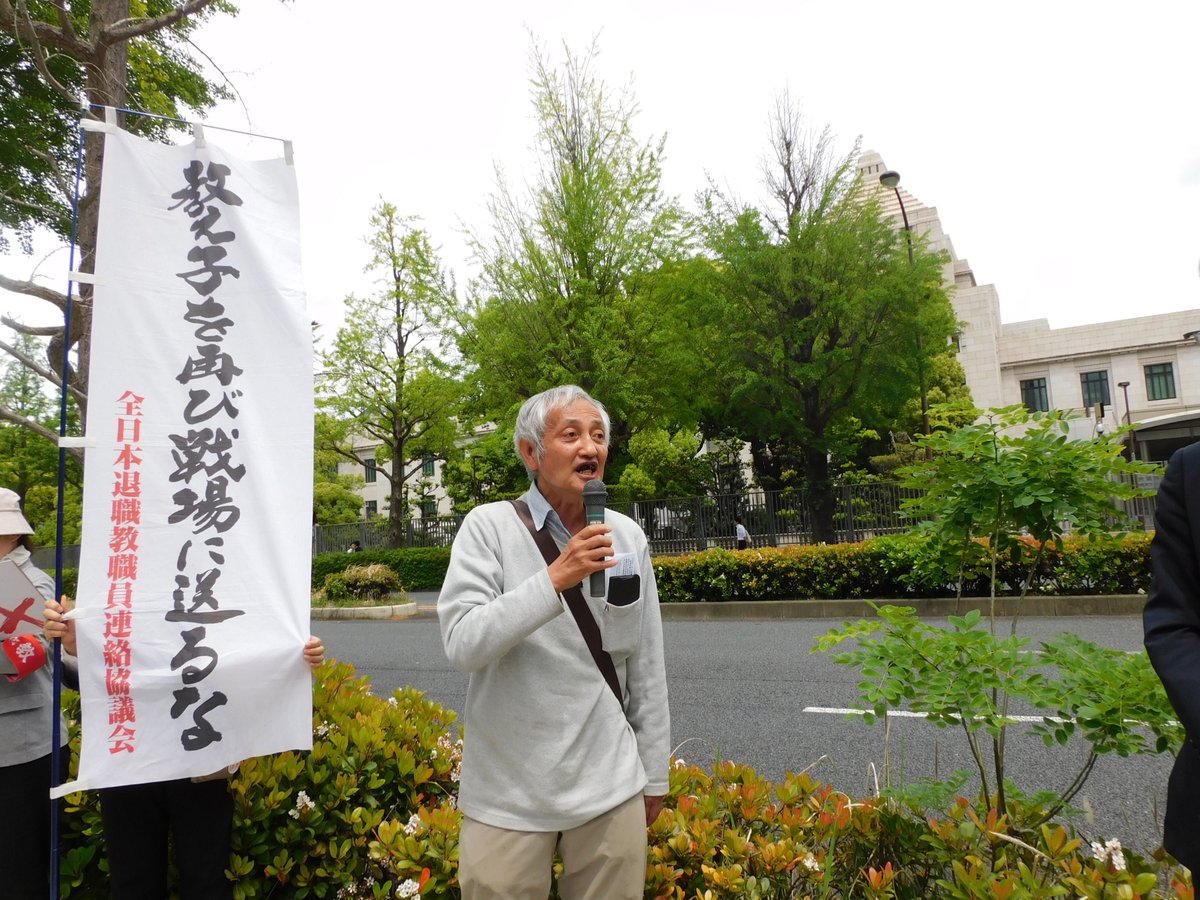 教え子を再び戦場に送るな
全日本退職教職員連絡協議会